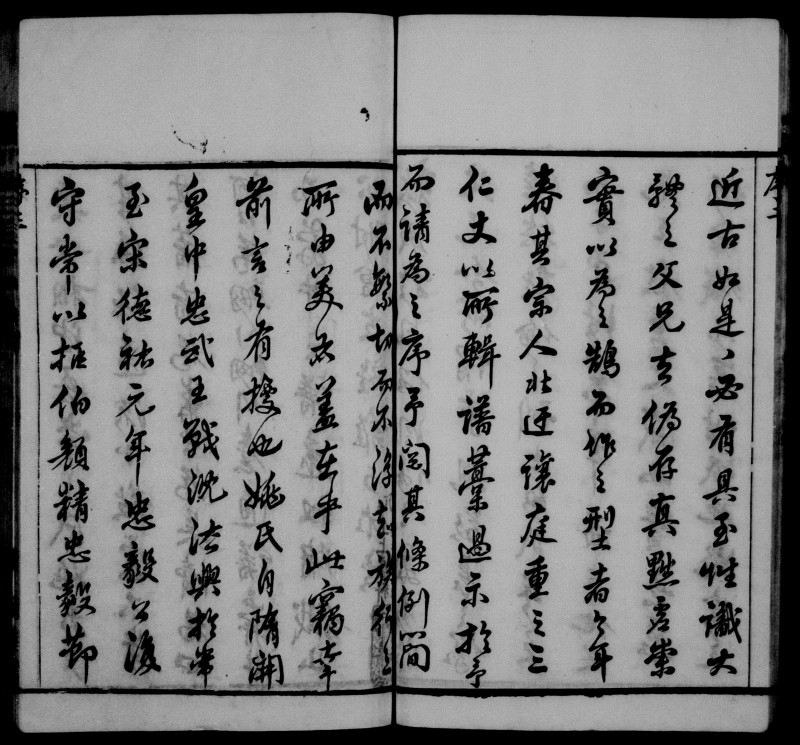 序二
近古如是是必有具至性識大
體之父兄去偽存真黜虛崇
實以為之鵠而作之型者今年
春其宗人北迂讓庭重之三
仁丈以所輯譜藁過示於予
而請為之序予閱其條例簡
而不繁切而不浮彭族行之
所由美者蓋在乎此竊幸
前言之有獲也姚氏自隋開
皇中忠武王戰沈法興於常
至宋德祐元年忠毅公復
守常以拒伯顏精忠毅節
序三